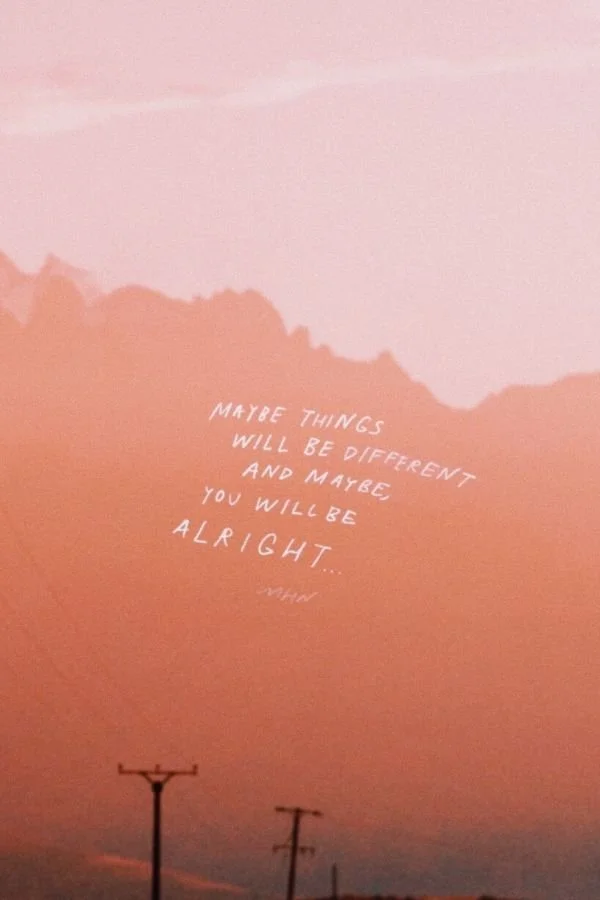 MAYBE THINGS
WILL BE DIFFERENT
AND MAYBE,
YOU WILL BE
ALRIGHT...